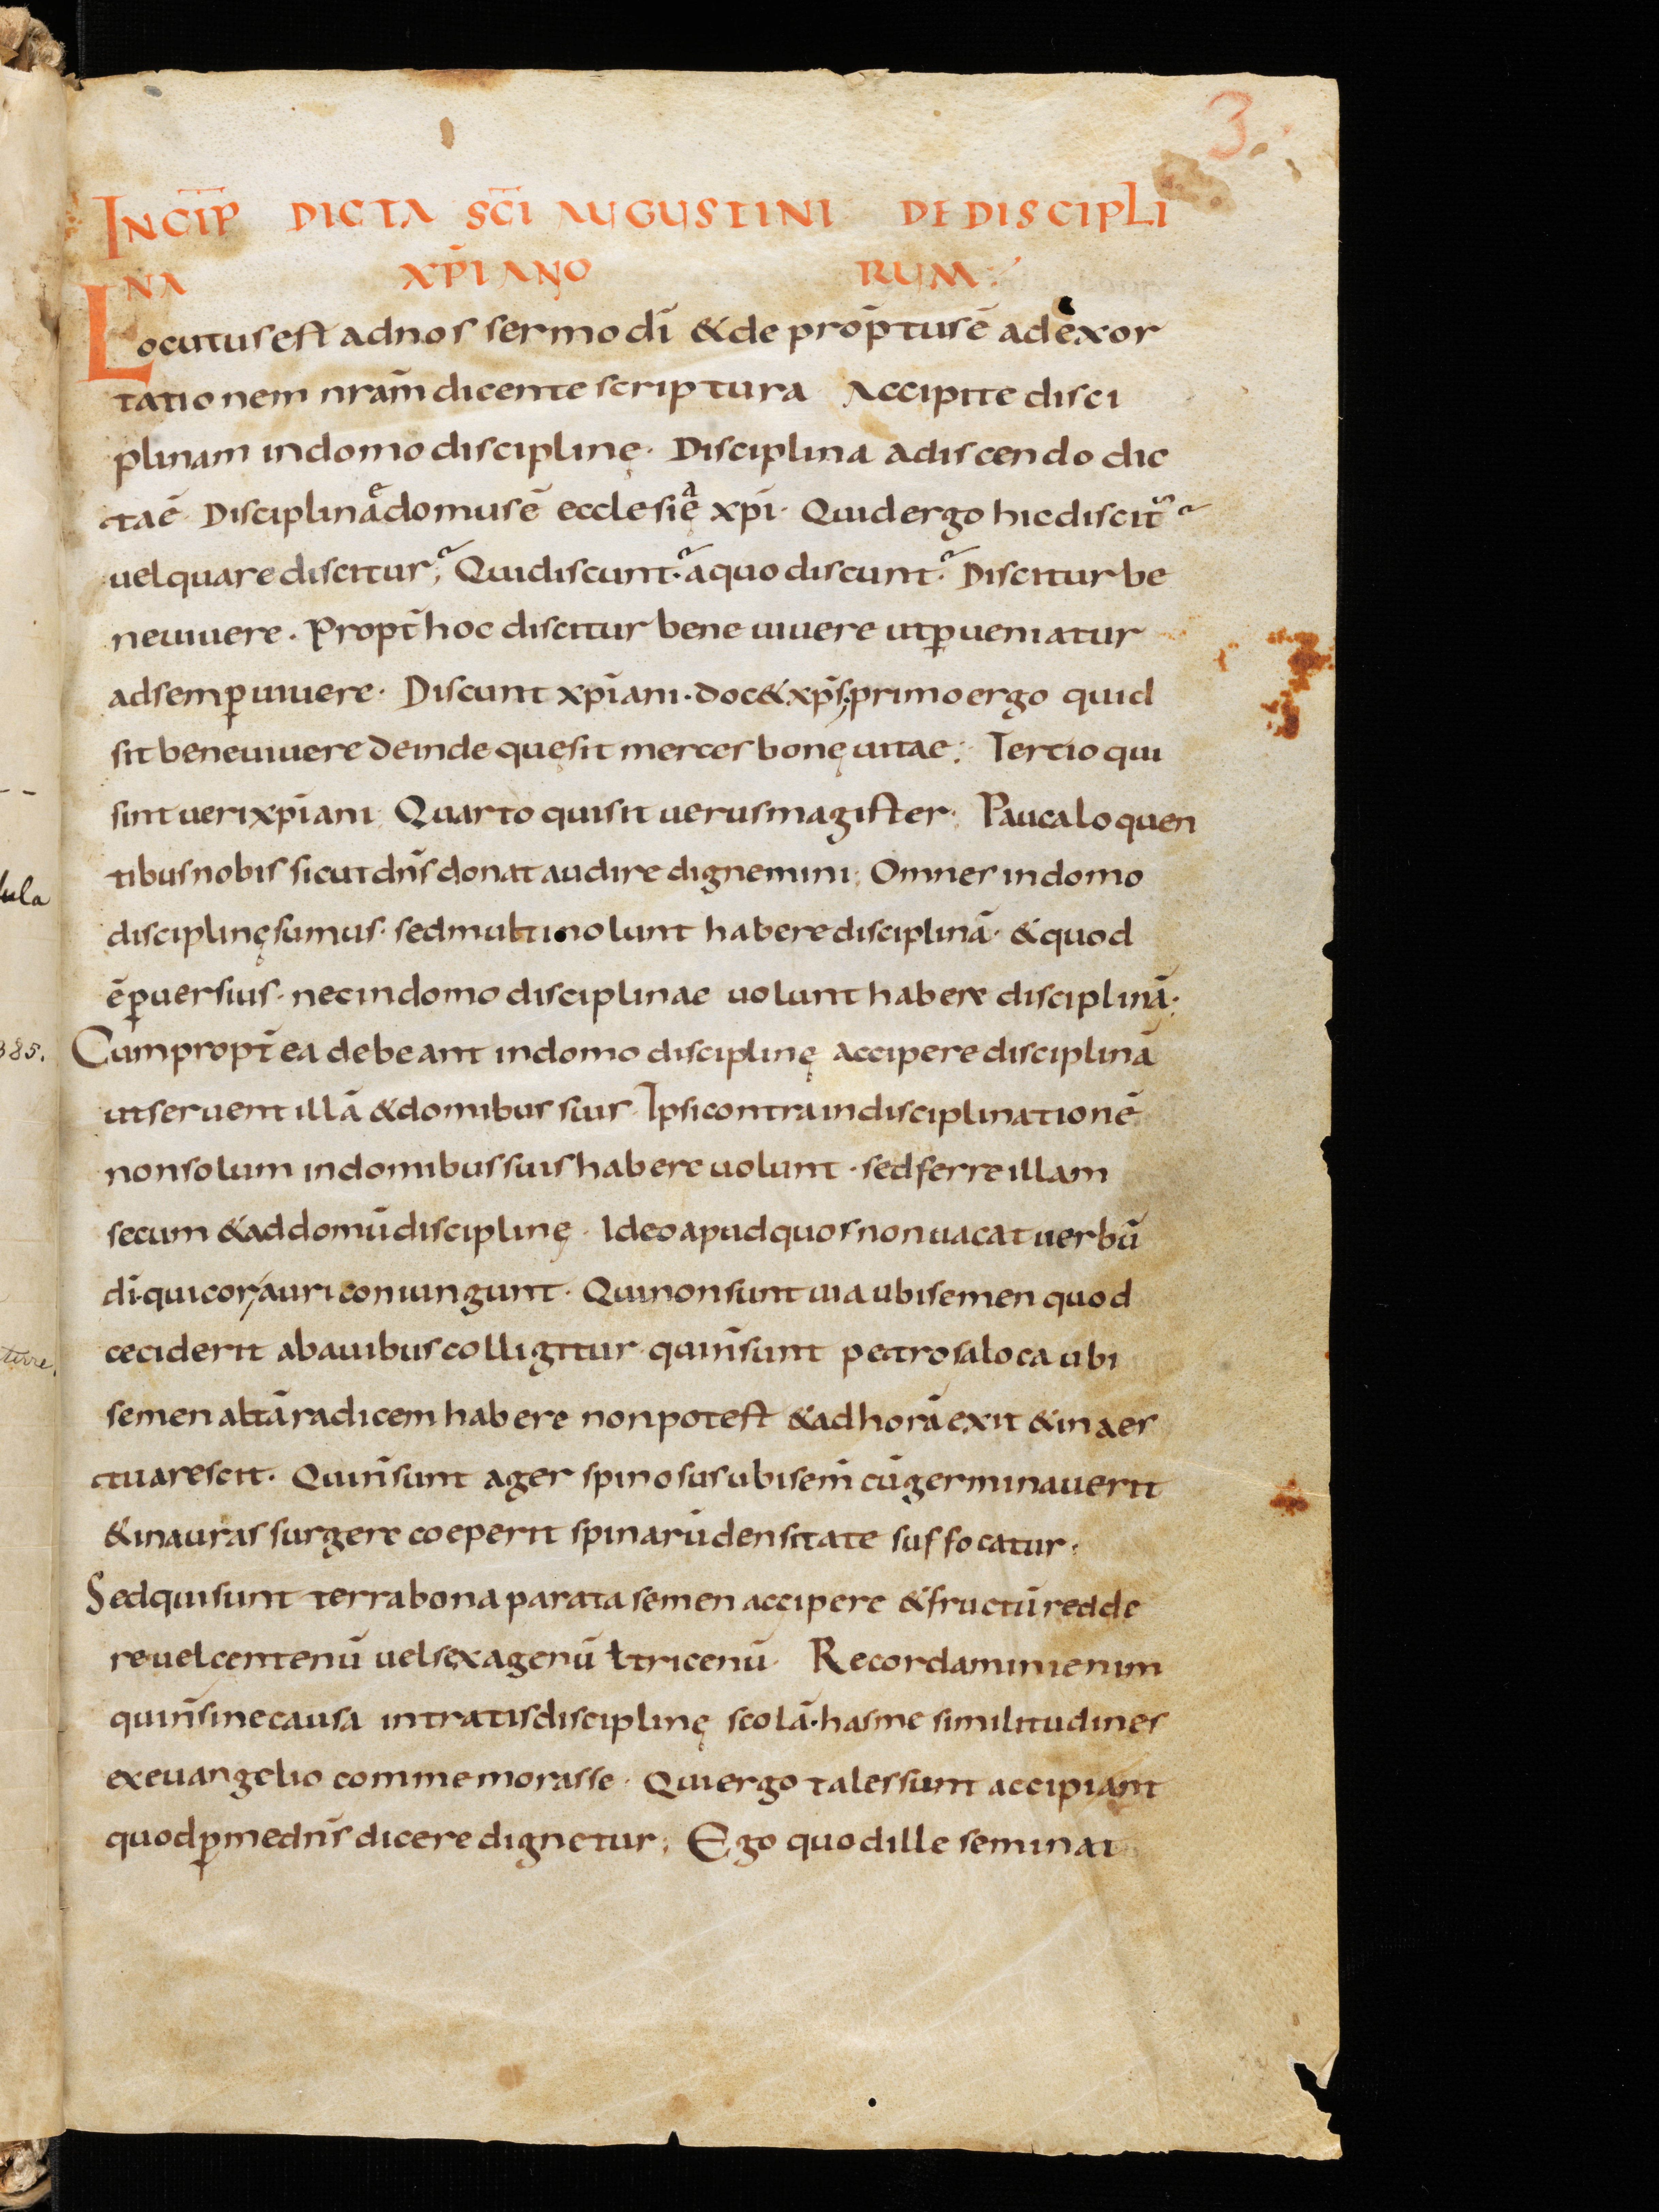 3.
INCĪP DICTA SC̄I AUGUSTINI DE DISCIPLI
NA XP̄IANO RUM
Locutus est ad nos sermo dī & de prop̄tus ē ad exor
tationem nrām dicente scriptura Accipite disci
plinam in domo disciplinę· Disciplina adiscendo dic
ta ē· Disciplinae domus ē ecclesię xp̄i· Quid ergo hic discit᷑
uel quare discitur; Qui discunt· a quo discunt· Discitur be
ne uiuere· Propt̄ hoc discitur bene uiuere ut ꝑueniatur
ad semꝑ uiuere· Discunt xp̄iani· doc& xp̄s; primo ergo quid
sit bene uiuere deinde quę sit merces bonę uitae; Tertio qui
sint ueri xp̄iani Quarto quis sit uerus magister· Pauca loquen
tibus nobis sicut dn̄s donat audire dignemini; Omnes in domo
disciplinę sumus· sed multi nolunt habere disciplinā· & quod
ē ꝑuersius· nec in domo disciplinae uolunt habere disciplinā·
Cum propt̄ea debeant in domo disciplinę accipere disciplinā
ut seruent illā & domibus suis· Ipsi contra indisciplinationē
non solum in domibus suis habere uolunt· sed ferre illam
secum & ad domū disciplinę· Ideo apud quos non uacat uerbū
dī· qui cor auri coniungunt· Qui non sunt uia ubi semen quod
ceciderit ab auibus colligitur· qui n̄ sunt petrosa loca ubi
semen altā radicem habere non potest & ad horā exit & in aes
tu arescit· Qui n̄ sunt ager spinosus ubi sem̄ cū germinauerit
& in auras surgere coeperit spinarū densitate suffocatur·
Sed qui sunt terra bona parata semen accipere & fructū redde
re· uel centenū uel sexagenū ł tricenū· Recordamini enim
qui n̄ sine causa intratis disciplinę scolā· has me similitudines
ex euangelio commemorasse· Qui ergo tales sunt accipiant
quod ꝑ me dn̄s dicere dignetur; Ego quod ille seminat